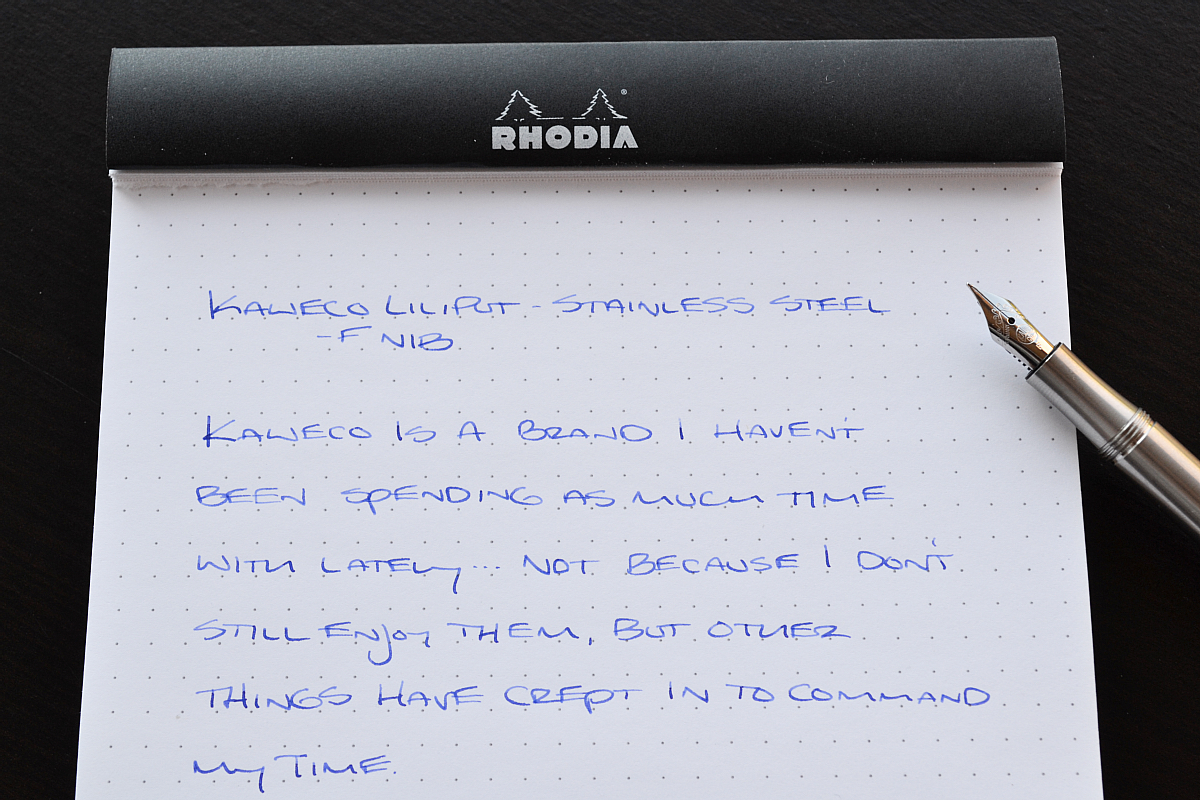 RHODIA
KAWECO LILIPUT - STAINLESS STEEL
- F NIB
KAWECO IS A BRAND I HAVEN'T
BEEN SPENDING AS MUCH TIME
WITH LATELY... NOT BECAUSE I DON'T
STILL ENJOY THEM, BUT OTHER
THINGS HAVE CREPT IN TO COMMAND
MY TIME.